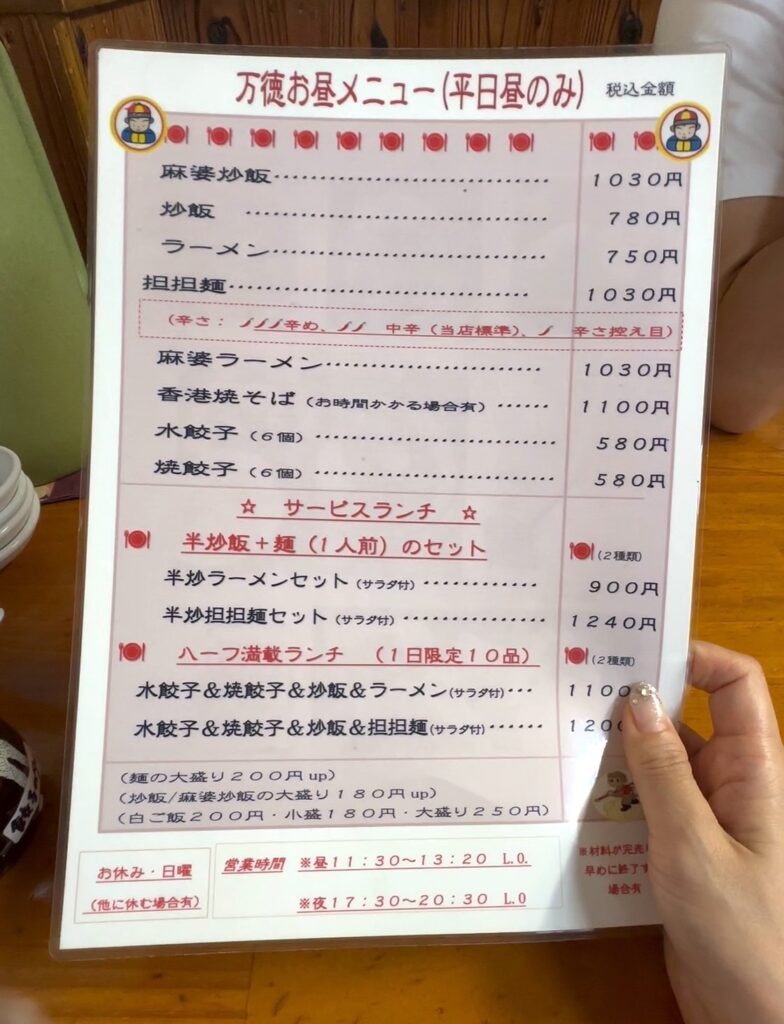 万徳お昼メニュー(平日昼のみ) 税込金額
麻婆炒飯……………………… 1030円
炒飯 ……………………… 780円
ラーメン……………………… 750円
担担麺……………………… 1030円
(辛さ: 辛め、 中辛(当店標準)、 辛さ控え目)
麻婆ラーメン…………………… 1030円
香港焼そば(お時間かかる場合有)…… 1100円
水餃子(6個)…………………… 580円
焼餃子(6個)…………………… 580円
☆ サービスランチ ☆
半炒飯+麺(1人前)のセット (2種類)
半炒ラーメンセット(サラダ付)………… 900円
半炒担担麺セット(サラダ付)…………… 1240円
ハーフ満載ランチ (1日限定10品) (2種類)
水餃子&焼餃子&炒飯&ラーメン(サラダ付)… 1100
水餃子&焼餃子&炒飯&担担麺(サラダ付)…… 120
(麺の大盛り200円up)
(炒飯/麻婆炒飯の大盛り180円up)
(白ご飯200円・小盛180円・大盛り250円)
お休み・日曜
(他に休む場合有)
営業時間 ※昼11:30~13:20 L.O.
※夜17:30~20:30 L.O
※材料が完売
早めに終了す
場合有